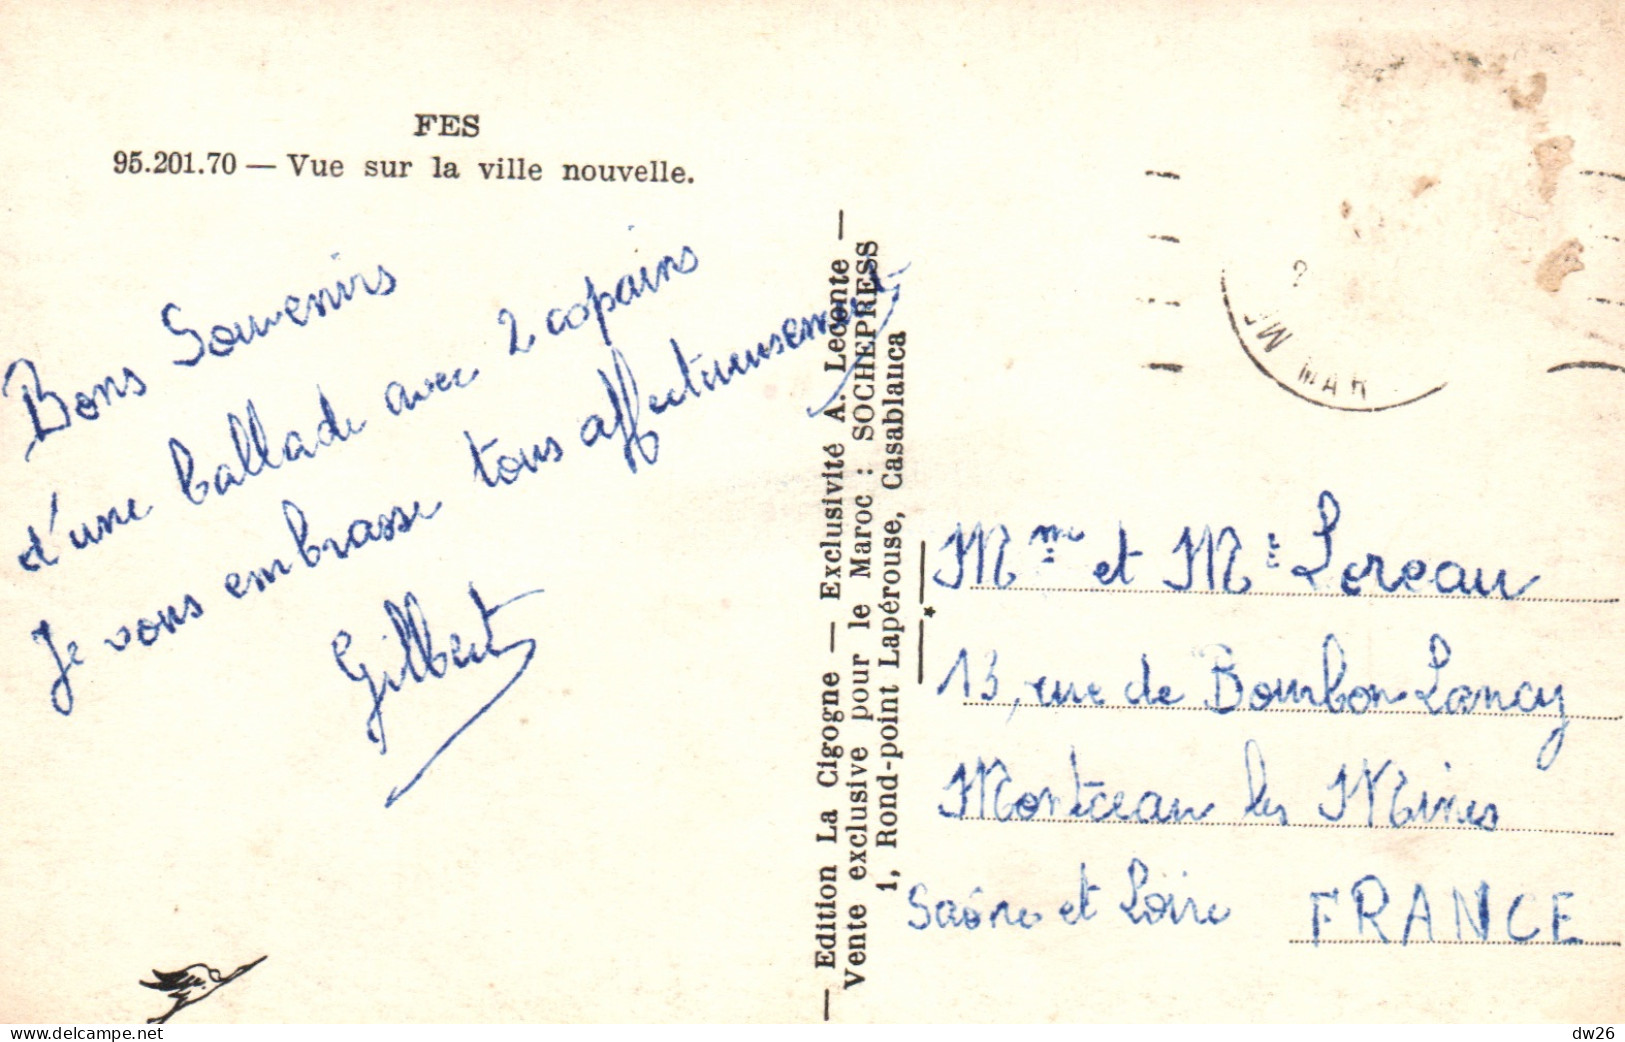 FES
95.201.70 — Vue sur la ville nouvelle.
Bons Souvenirs
d'une ballade avec 2 copains
Je vous embrasse tous affectueusement
Gilbert
— Edition La Cigogne — Exclusivité A. Leconte —
Vente exclusive pour le Maroc : SOCHEPRESS
1, Rond-point Lapérouse, Casablanca
Mme et Mr Lereau
13, rue de Bourbon Lancy
Montceau les Mines
Saône et Loire FRANCE
MAR
dw26